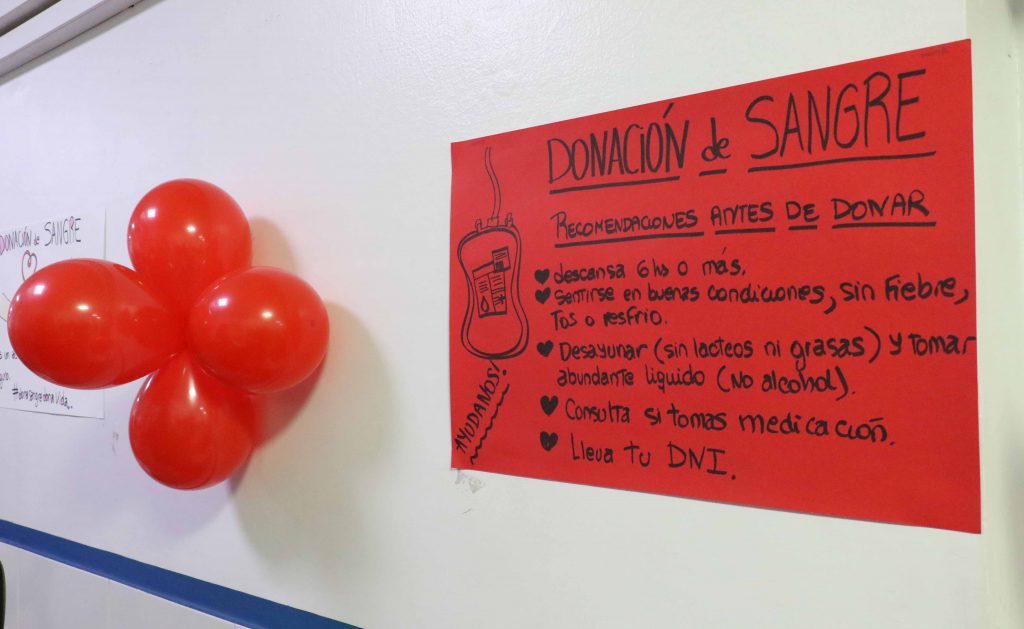 DONACIÓN de SANGRE
#donarsangredonaVida
DONACIÓN de SANGRE
RECOMENDACIONES ANTES DE DONAR
descansa 6 hs o más.
Sentirse en buenas condiciones, sin fiebre,
Tos o resfrio.
Desayunar (sin lacteos ni grasas) y tomar
abundante liquido (No alcohol).
Consulta si tomas medicación.
Lleva tu DNI.
¡AYUDANOS!